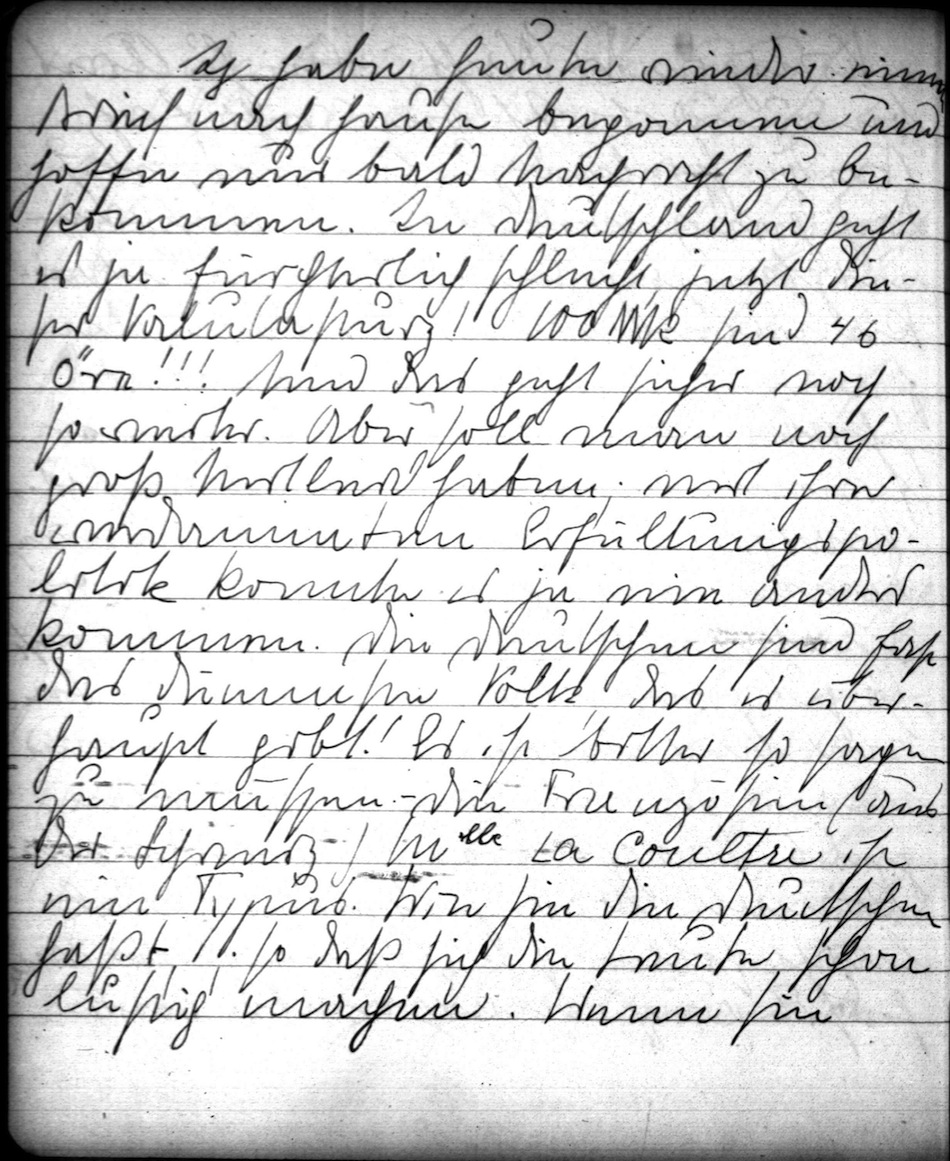 Ich habe heute wieder einen
Brief nach Hause begonnen und
hoffe nur bald Nachricht zu be-
kommen. In Deutschland geht
es ja fürchterlich schlecht, jetzt die-
ser Valutasturz! 100 Mk sind 46
Öre!!! Und das geht sicher noch
so weiter. Aber soll man noch
groß Mitleid haben, mit ihrer
verdammten Erfüllungspo-
litik konnte es ja nie anders
kommen. Die Deutschen sind fast
das dümmste Volk, das es über-
haupt gibt! Es ist bitter so sagen
zu müssen. – Die Französin (aus
der Schweiz) Mlle La Coultre ist
ein Typus. Wie sie die Deutschen
haßt!! so daß sich die Leute schon
lustig machen. Wenn sie